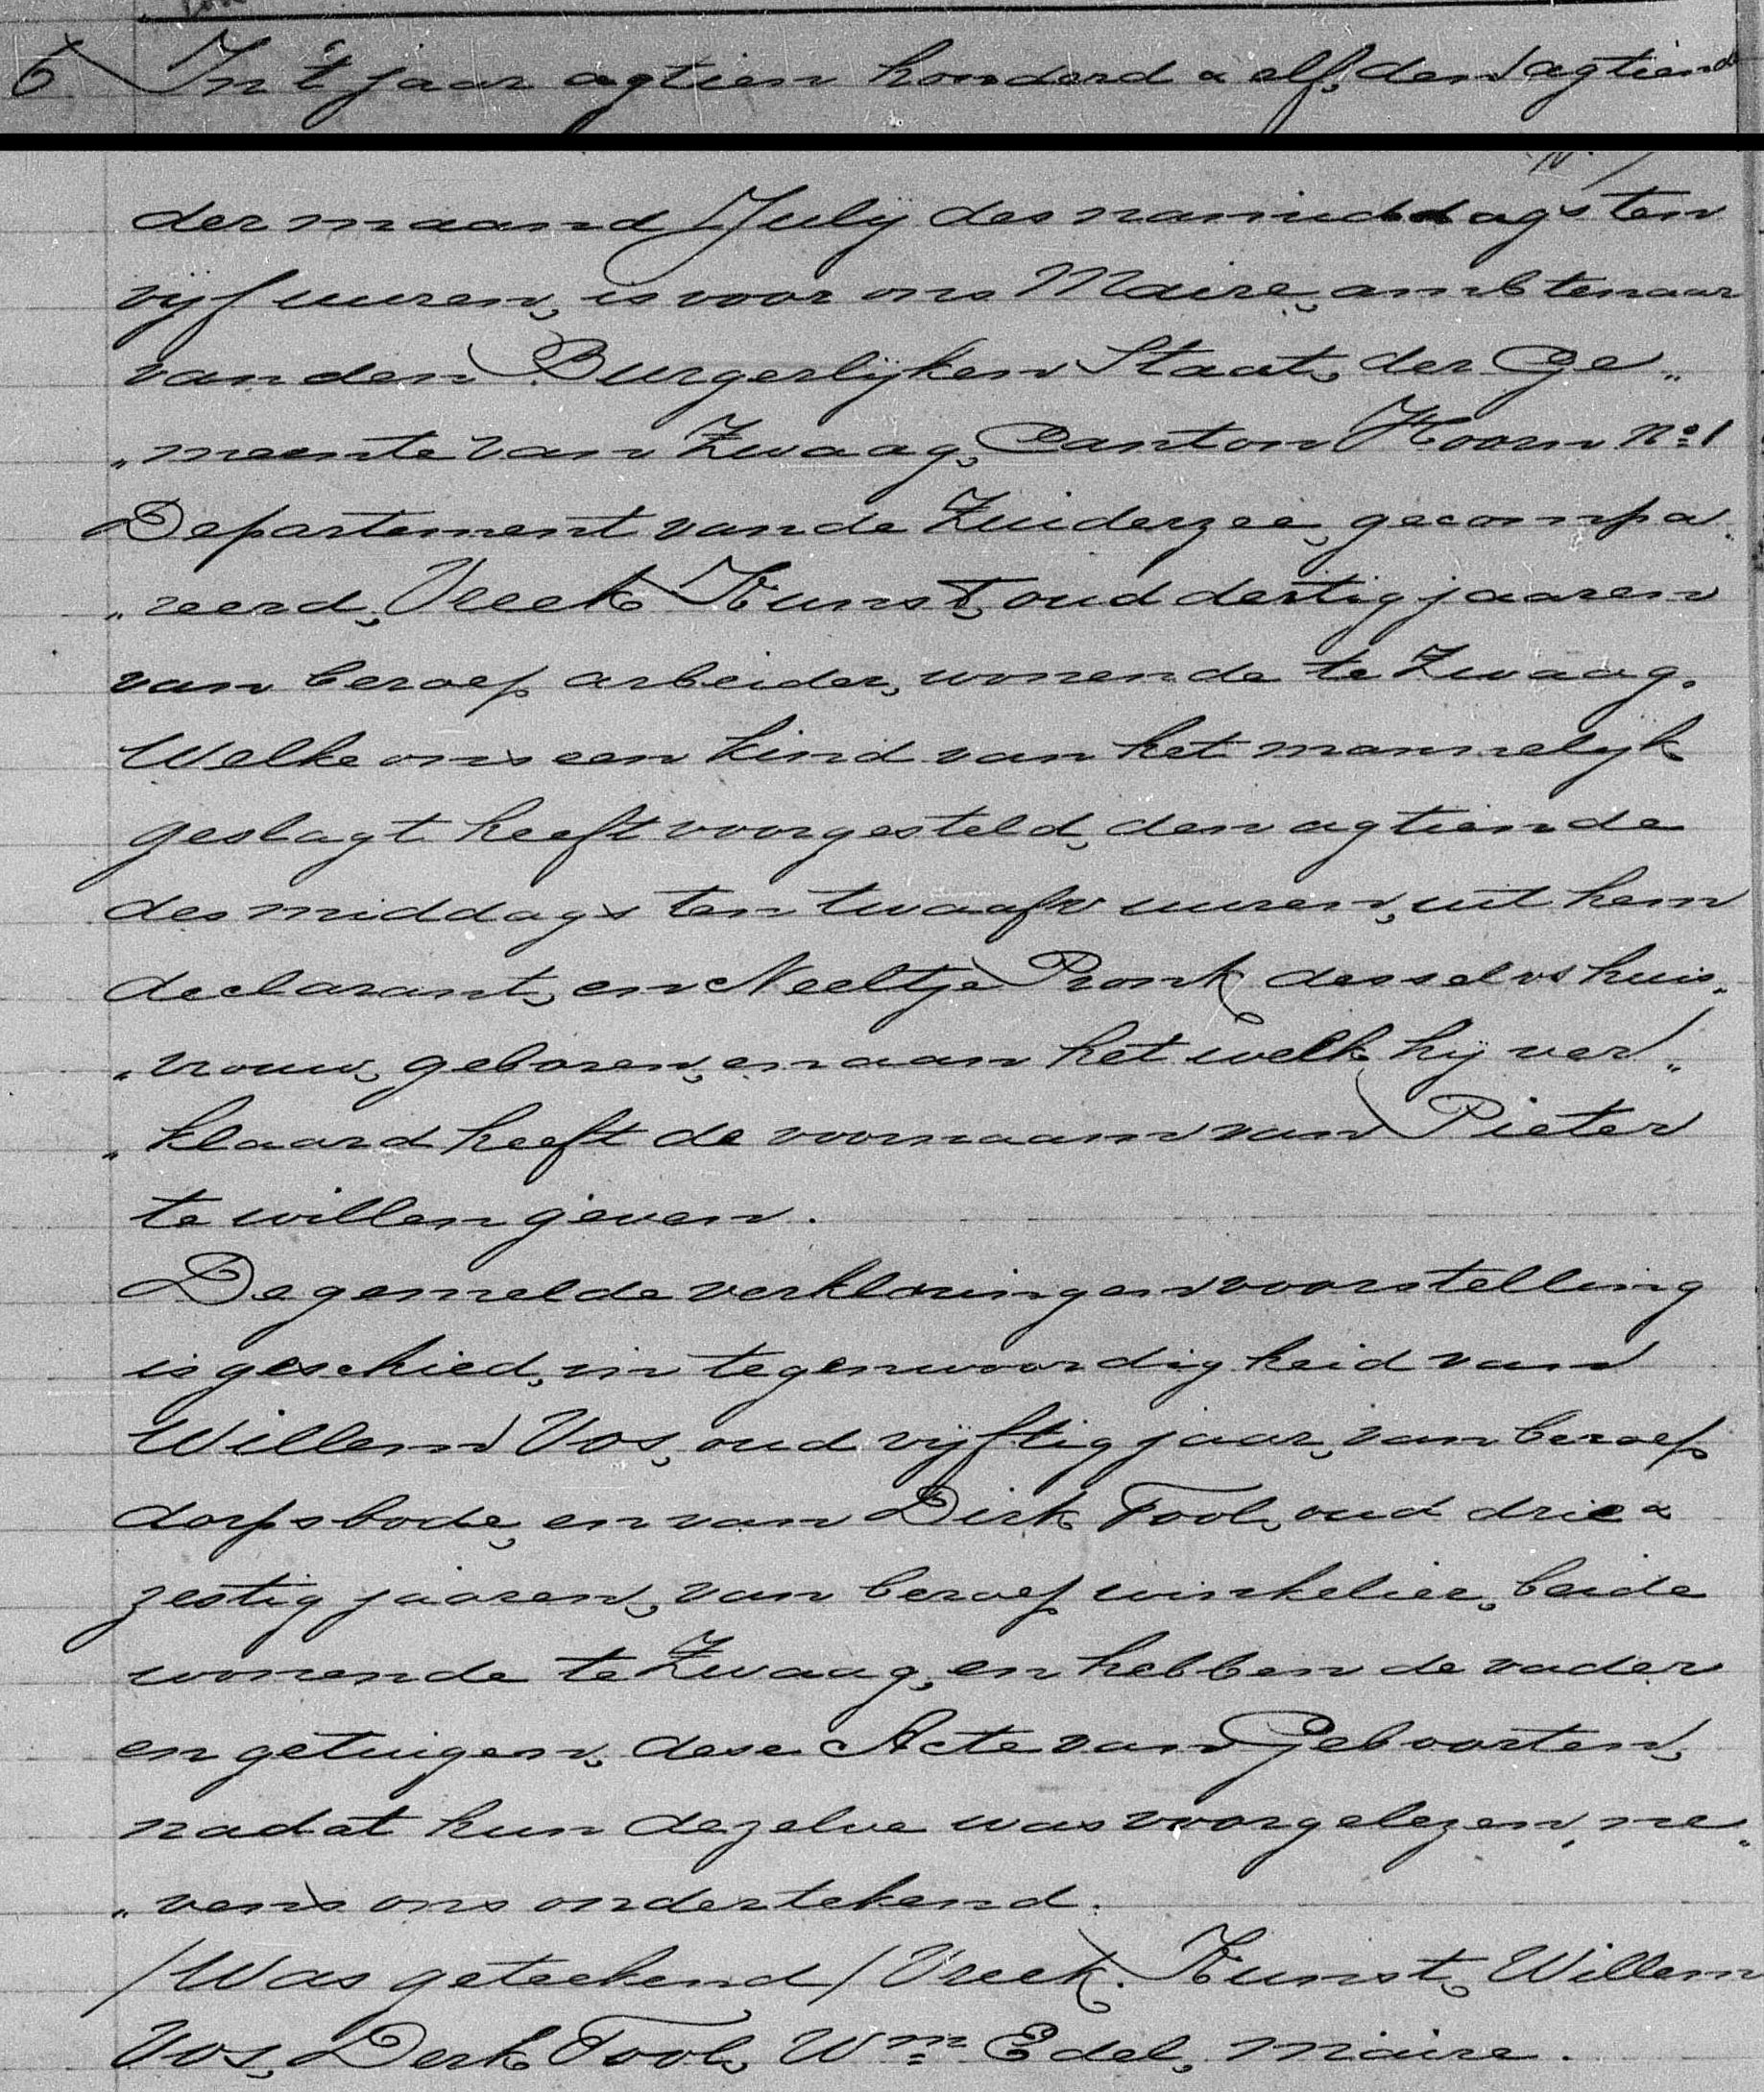 6. In 't jaar agtien honderd & elf, den agtiende
der maand July des namiddags ten
vijf uuren, is voor ons Maire, ambtenaar
van den Burgerlijken Staat, der Ge„
„meente van Zwaag, Canton Hoorn No: 1
Departement van de Zuiderzee, gecompa„
„reerd, Vreek Kunst, oud dertig jaaren
van beroep arbeider, wonende te Zwaag.
Welke ons een kind van het mannelijk
geslagt heeft voorgesteld, den agtiende
des middags ten twaalf uuren, uit hem
declarant, en Neeltje Pronk desselvs huis„
„vrouw, geboren, en aan het welk hij ver„
„klaard heeft de voornaam van Pieter
te willen geven.
De gemelde verklaring en voorstelling
is geschied, in tegenwoordigheid van
Willem Vos, oud vijftig jaar, van beroep
dorpsbode, en van Dirk Tool, oud drie &
zestig jaaren, van beroep winkelier, beide
wonende te Zwaag, en hebben de vader
en getuigen, dese Acte van Geboorten,
nadat hun dezelve was voorgelezen, ne„
„vens ons ondertekend.
/Was geteekend/ Vreek Kunst, Willem
Vos, Derk Tool, Wm: Edel, maire.